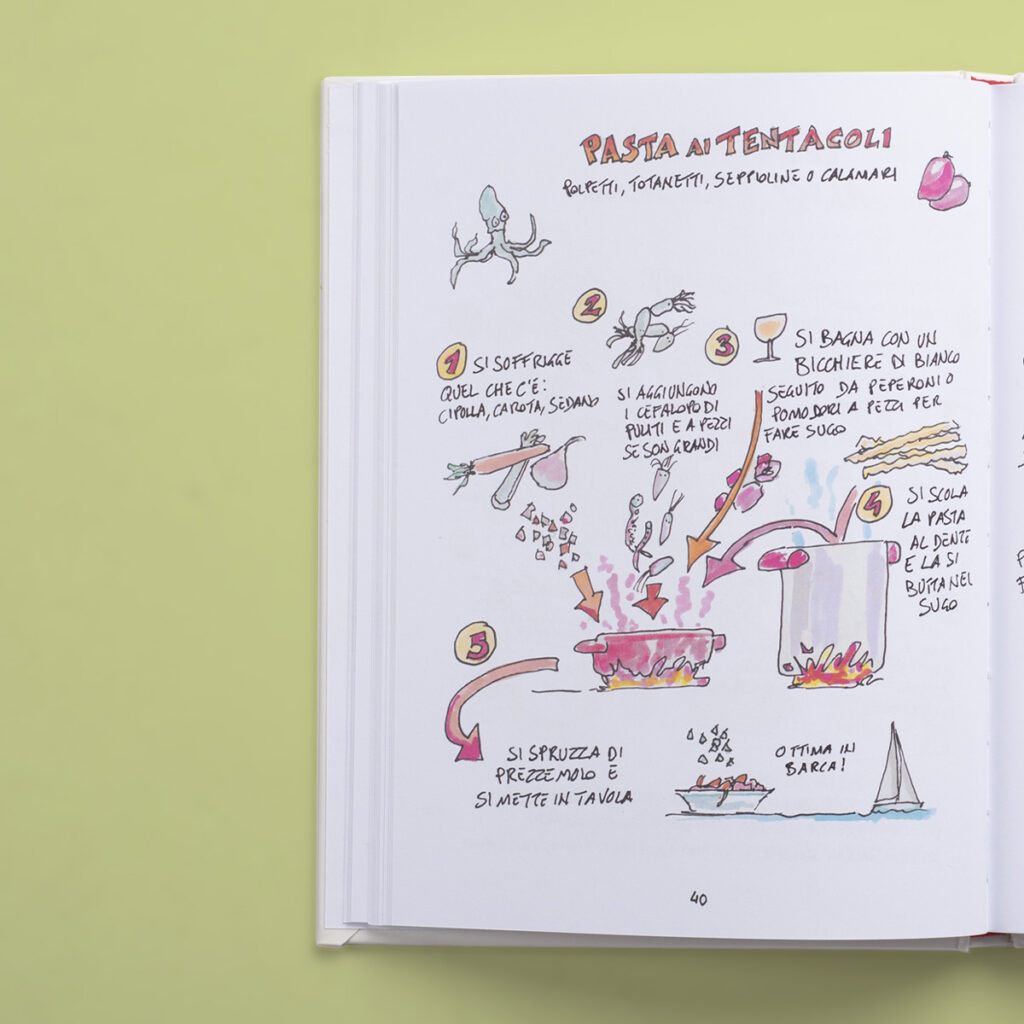 PASTA AI TENTACOLI
POLPETTI, TOTANETTI, SEPPIOLINE O CALAMARI
1 SI SOFFRIGGE
QUEL CHE C'È:
CIPOLLA, CAROTA, SEDANO
2
SI AGGIUNGONO
I CEFALOPODI
PULITI E A PEZZI
SE SON GRANDI
3
SI BAGNA CON UN
BICCHIERE DI BIANCO
SEGUITO DA PEPERONI O
POMODORI A PEZZI PER
FARE SUGO
4
SI SCOLA
LA PASTA
AL DENTE
E LA SI
BUTTA NEL
SUGO
5
SI SPRUZZA DI
PREZZEMOLO E
SI METTE IN TAVOLA
OTTIMA IN
BARCA!
40